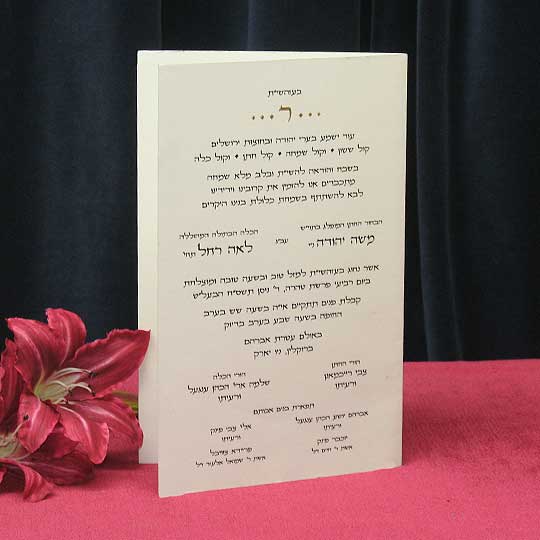 בעזהשי״ת
...ר...
עוד ישמע בערי יהודה ובחוצות ירושלים
קול ששון • וקול שמחה • קול חתן • וקול כלה
בשבח והודאה להשי״ת ובלב מלא שמחה
מתכבדים אנו להזמין את קרובינו וידידינו
לבא להשתתף בשמחת כלולת בנינו היקרים
הבחור החתן המופלג בתו״ש
משה יהודה ני״ו
עב״ג
הכלה הבתולה המהוללה
לאה רחל תחי׳
אשר נחוג בעזהשי״ת למזל טוב ובשעה טובה ומוצלחת
ביום רביעי פרשת טהרה, ד׳ ניסן תשס״ח הבעל״ט
קבלת פנים תתקיים אי״ה בשעה שש בערב
החופה בשעה שבע בערב בדיוק
באולם עטרת אברהם
ברוקלין, ניו יארק
הורי החתן
צבי רייכמאן
ורעיתו
הורי הכלה
שלמה ארי׳ הכהן ענגעל
ורעיתו
תפארת בנים אבותם
אברהם ישע׳ הכהן ענגעל
ורעיתו
יוכבד פינק
אלי׳ צבי פינק
ורעיתו
פרידא
אשת ר׳ שמואל אלעזר ז״ל